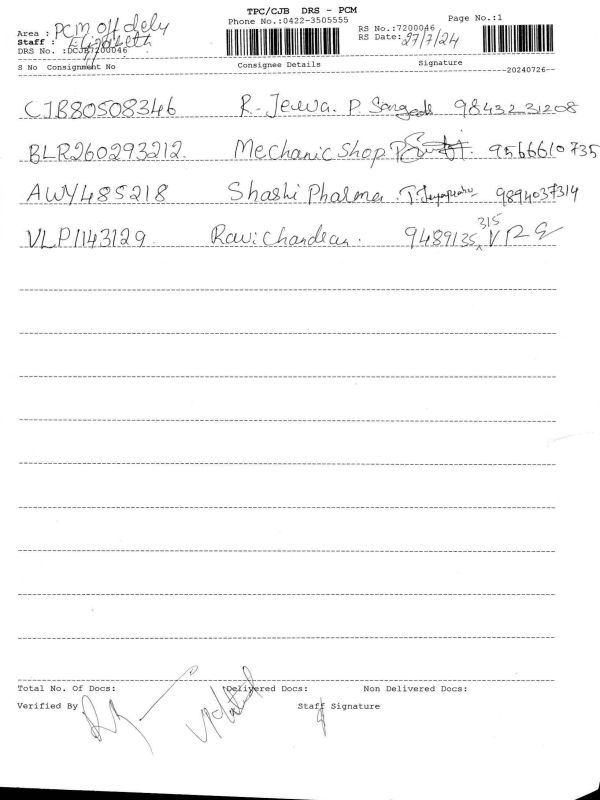 TPC/CJB DRS - PCM
Phone No.:0422-3505555
Page No.:1
Area : PCM off dely
Staff : Elizabeth
DRS No. :DCJB7200046
RS No.:7200046
RS Date: 27/7/24
S No Consignment No Consignee Details Signature
20240726
CJB80508346 R. Jeeva. P. 98432 31208
BLR260293212. Mechanic Shop 9566610735
AWY485218 Shashi Pharma 9894037314
VLP1143129. Ravi Chandran. 9489135315 VRG
Total No. Of Docs: Delivered Docs: Non Delivered Docs:
Verified By Staff Signature